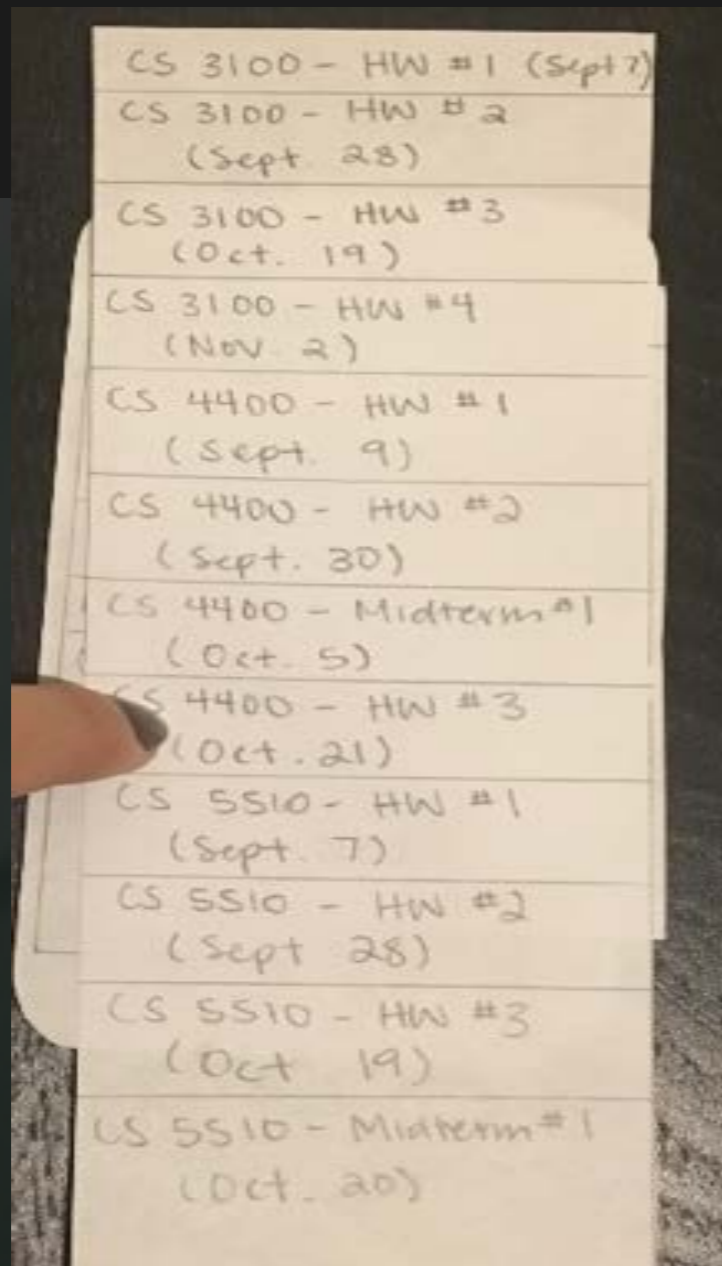 CS 3100 - HW #1 (Sept 7)
CS 3100 - HW #2
(Sept. 28)
CS 3100 - HW #3
(Oct. 19)
CS 3100 - HW #4
(Nov. 2)
CS 4400 - HW #1
(Sept. 9)
CS 4400 - HW #2
(Sept. 30)
CS 4400 - Midterm #1
(Oct. 5)
CS 4400 - HW #3
(Oct. 21)
CS 5510 - HW #1
(Sept. 7)
CS 5510 - HW #2
(Sept 28)
CS 5510 - HW #3
(Oct 19)
CS 5510 - Midterm #1
(Oct. 20)